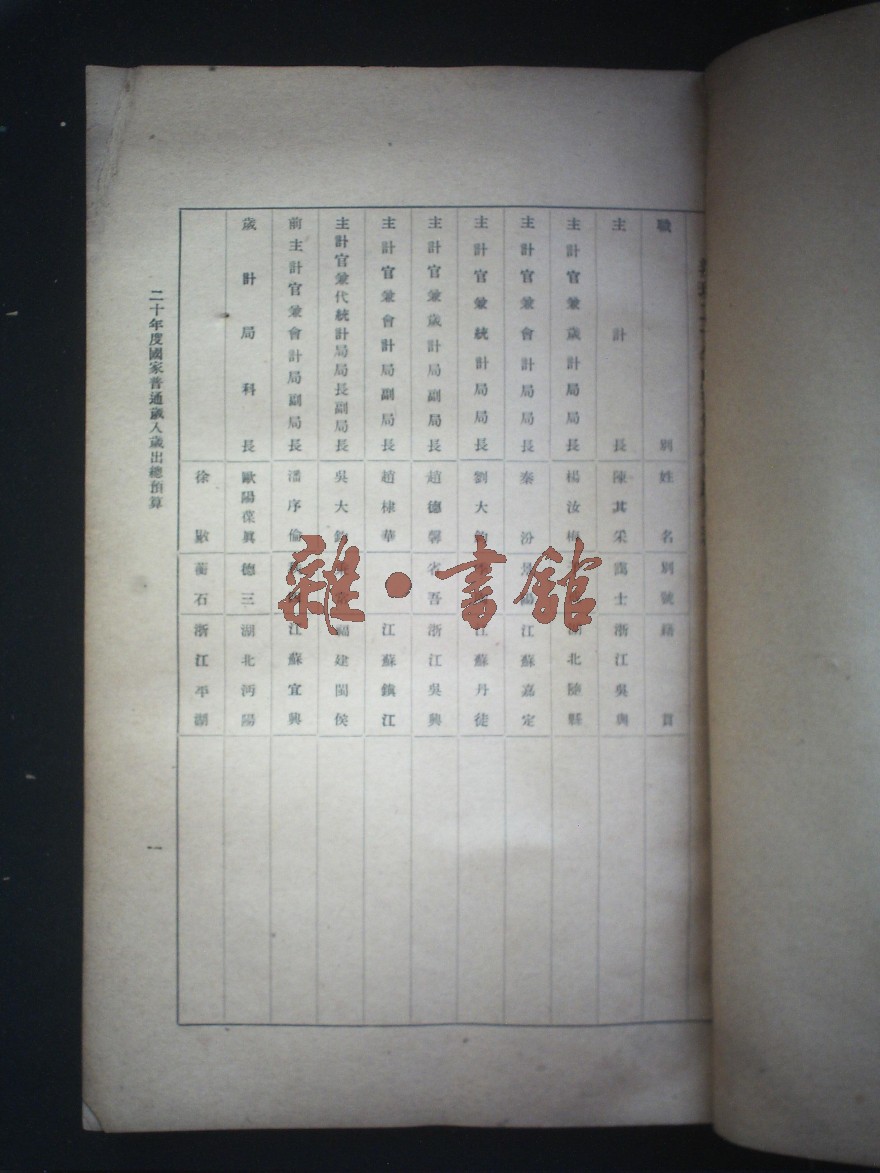 職別 姓名 別號 籍貫
主計長 陳其采 藹士 浙江吳興
主計官兼歲計局局長 楊汝梅 北隨縣
主計官兼會計局局長 秦汾 景陽 江蘇嘉定
主計官兼統計局局長 劉大鈞 江蘇丹徒
主計官兼歲計局副局長 趙德馨 省吾 浙江吳興
主計官兼會計局副局長 趙棣華 江蘇鎮江
主計官兼代統計局局長副局長 吳大鈞 福建閩侯
前主計官兼會計局副局長 潘序倫 江蘇宜興
歲計局科長 歐陽葆眞 德三 湖北沔陽
徐 蘅石 浙江平湖
二十年度國家普通歲入歲出總預算
一
雜·書館